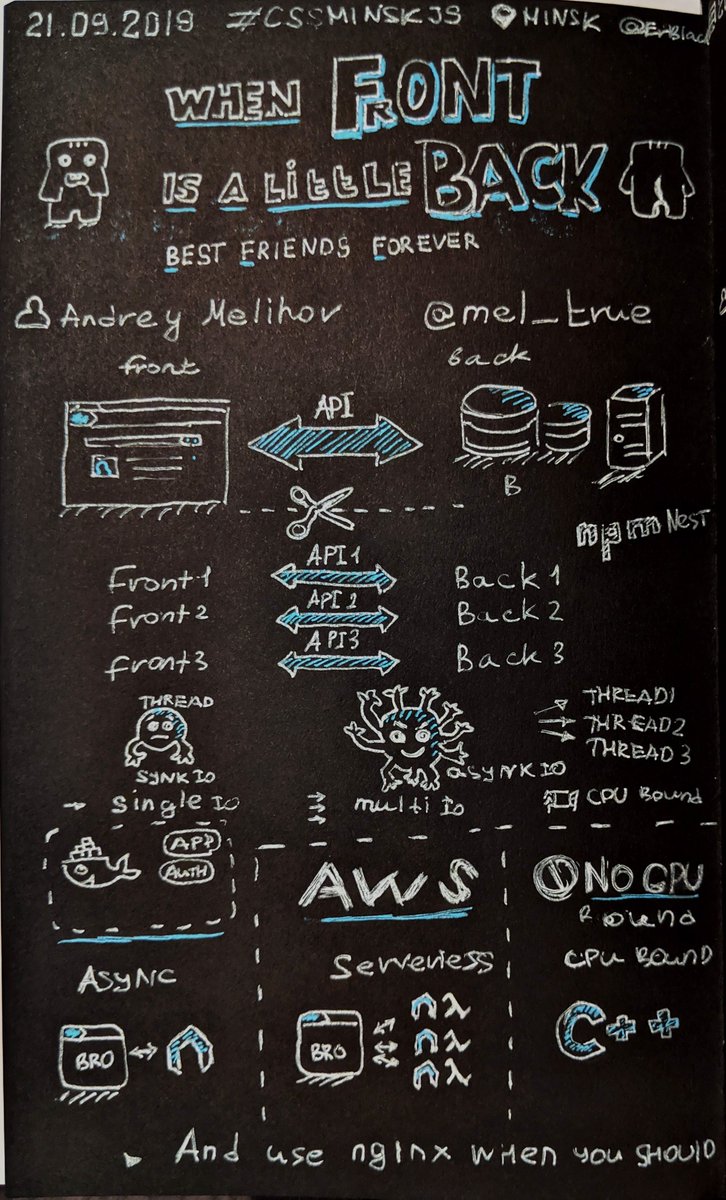 21.09.2019 #CSSMINSKJS MINSK @EvBlack
WHEN FRONT
IS A LITTLE BACK
BEST FRIENDS FOREVER
Andrey Melihov @mel_true
front back
API
B
npm NEST
Front1 API1 Back1
Front2 API2 Back2
front3 API3 Back3
THREAD
SYNK IO
single IO
asYNK IO
multi Io
THREAD1
THREAD2
THREAD3
CPU Bound
APP
AUTH
ASYNC
BRO
AWS
Serverless
BRO
λ
λ
λ
NO GPU
Bound
CPU BOUND
C++
And use nginx when you SHOULD